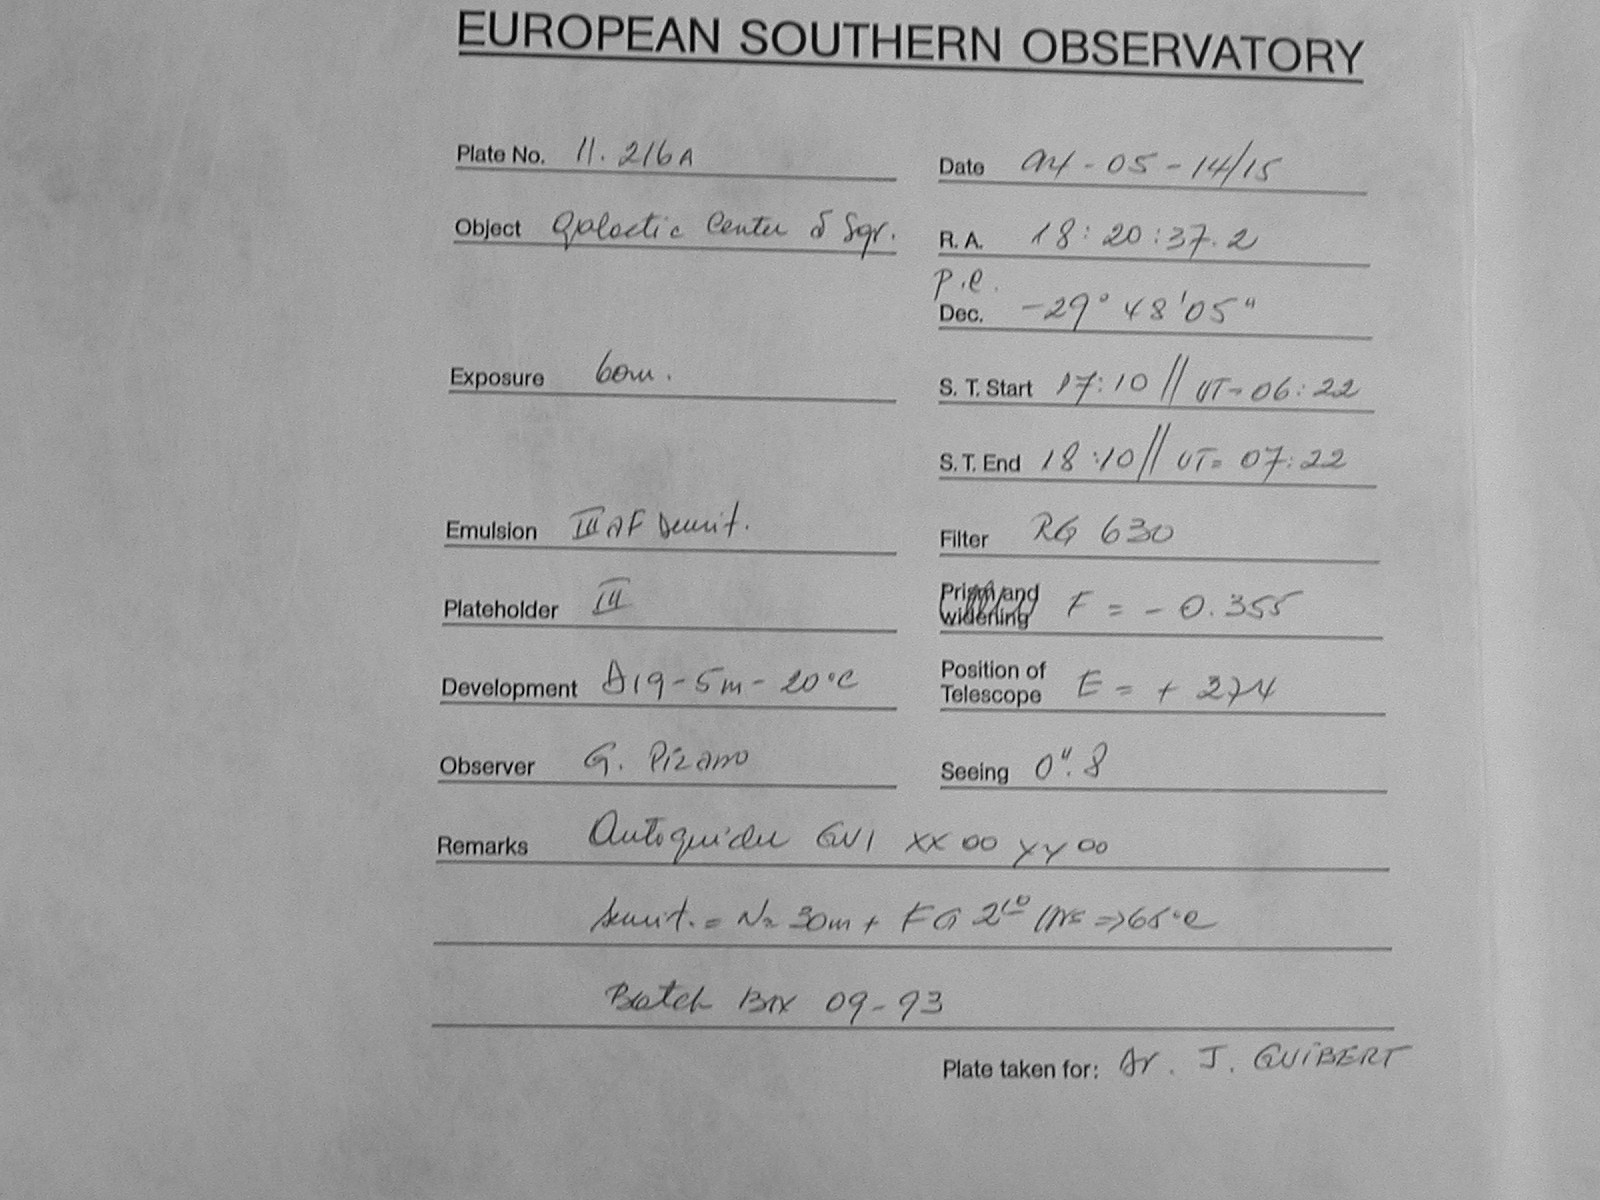 EUROPEAN SOUTHERN OBSERVATORY
Plate No. 11.216A
Date 94-05-14/15
Object Galactic Center δ Sgr.
R. A. 18:20:37.2
p.e.
Dec. -29° 48'05"
Exposure 60m.
S. T. Start 17:10 // UT= 06:22
S. T. End 18:10 // UT= 07:22
Emulsion III aF sensit.
Filter RG 630
Plateholder III
Prism and
widening F = - 0.355
Development D19-5m-20°C
Position of
Telescope E = + 274
Observer G. Pizarro
Seeing 0".8
Remarks Autoguider GV1 XX 00 YY 00
sensit. = N2 30m + FG => 65°C
Batch Box 09-93
Plate taken for: Dr. J. GUIBERT